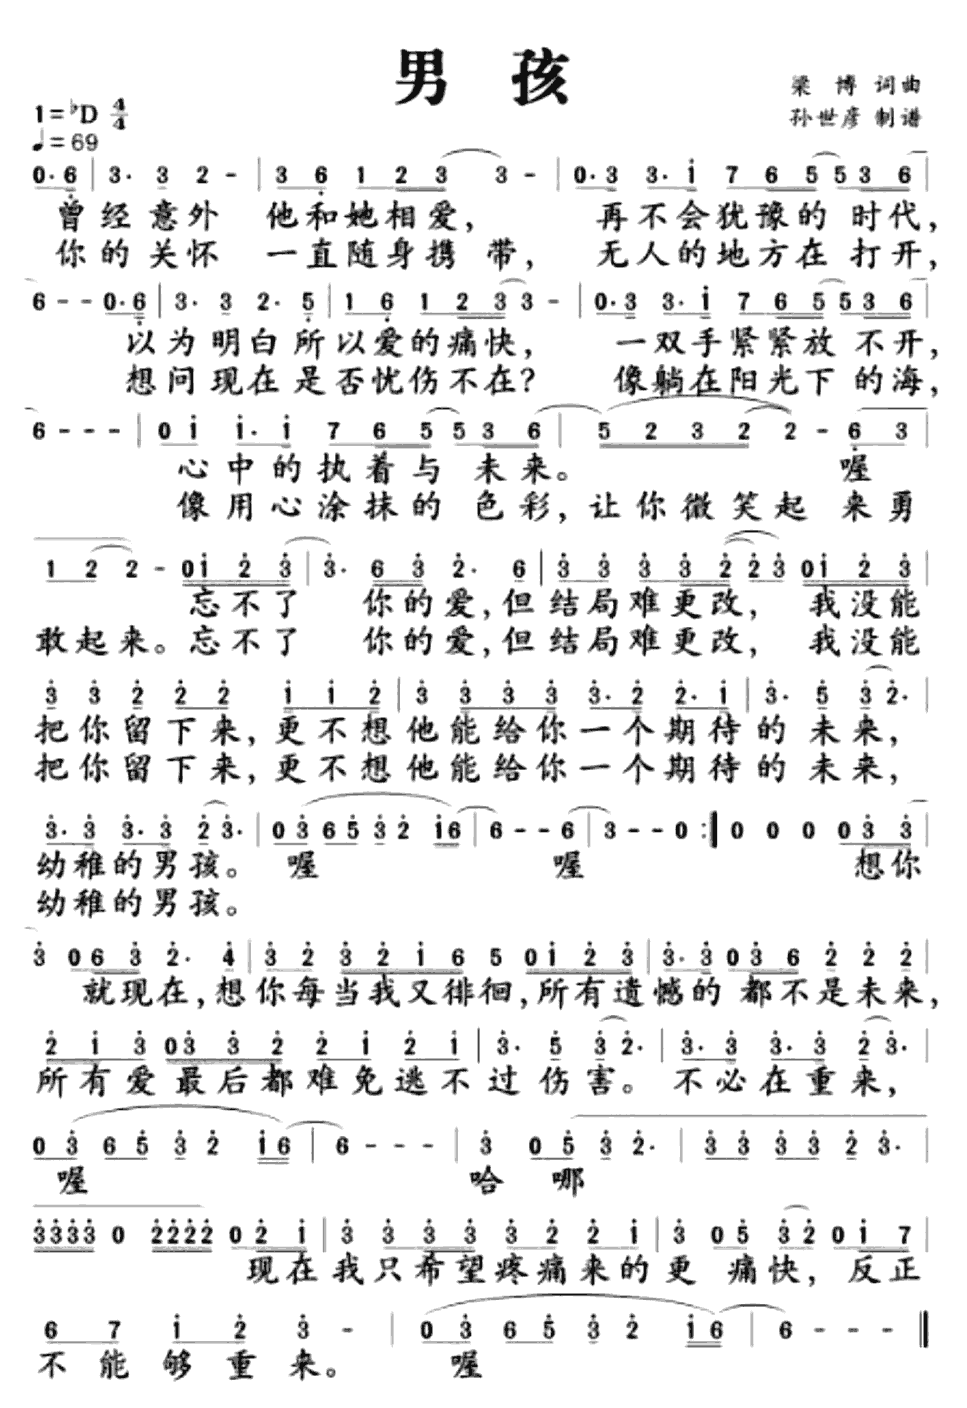 男 孩
梁 博 词曲
孙世彦 制谱
1=♭D 4/4
♩=69
0·6 | 3· 3 2 - | 3 6 1 2 3 3 - | 0·3 3· i 7 6 5 5 3 6 |
曾经意外 他和她相爱， 再不会犹豫的 时代，
你的关怀 一直随身携 带， 无人的地方在 打开，
6 - - 0·6 | 3· 3 2· 5 | 1 6 1 2 3 3 - | 0·3 3· i 7 6 5 5 3 6 |
以为明白所以爱的痛快， 一双手紧紧放 不开，
想问现在是否忧伤不在？ 像躺在阳光下 的海，
6 - - - | 0 i i· i 7 6 5 5 3 6 | 5 2 3 2 2 - 6 3 |
心中的执着与 未来。 喔
像用心涂抹的 色彩，让你微笑起 来勇
1 2 2 - 0 i 2 3 | 3· 6 3 2· 6 | 3 3 3 3 2 2 3 0 i 2 3 |
忘不了 你的爱，但结局难更改， 我没能
敢起来。忘不了 你的爱，但结局难更改， 我没能
3 3 2 2 2 i i 2 | 3 3 3 3 3· 2 2· i | 3· 5 3 2· |
把你留下来，更不想他能给你一个期待的 未来，
把你留下来，更不想他能给你一个期待的 未来，
3· 3 3· 3 2 3· | 0 3 6 5 3 2 i 6 | 6 - - 6 | 3 - - 0 :| 0 0 0 0 3 3 |
幼稚的男孩。 喔 喔 想你
幼稚的男孩。
3 0 6 3 2· 4 | 3 2 3 2 i 6 5 0 i 2 3 | 3· 3 0 3 6 2 2 2 |
就现在，想你每当我又徘徊，所有遗憾的 都不是未来，
2 i 3 0 3 3 2 2 i 2 i | 3· 5 3 2· | 3· 3 3· 3 2 3· |
所有爱最后都难免逃不过伤害。 不必在重来，
0 3 6 5 3 2 i 6 | 6 - - - | 3 0 5 3 2· | 3 3 3 3 2 3· |
喔 哈 哪
3 3 3 3 0 2 2 2 2 0 2 i | 3 3 3 3 2 2 i | 3 0 5 3 2 0 i 7 |
现在我只希望疼痛来的更 痛快，反正
6 7 i 2 3 - | 0 3 6 5 3 2 i 6 | 6 - - - ‖
不能够重来。 喔